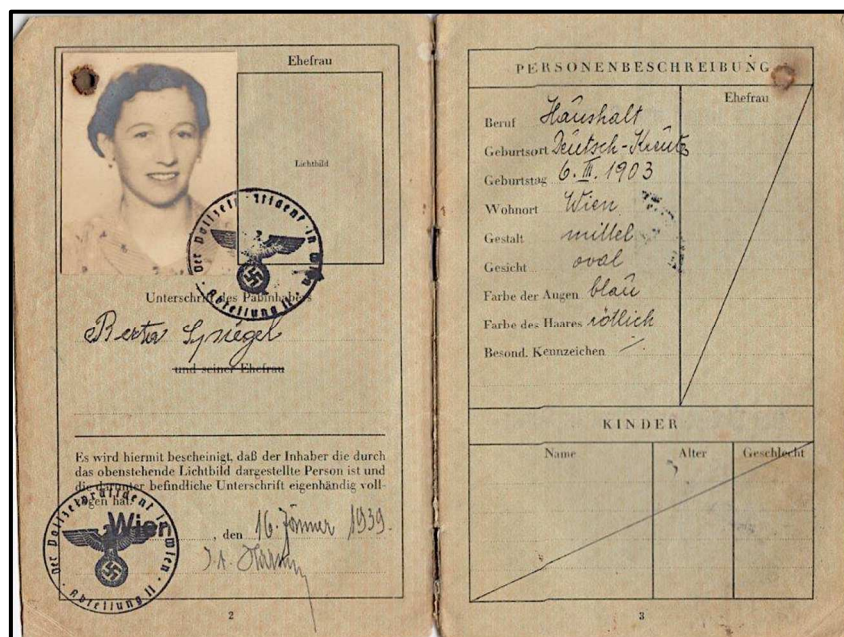 Ehefrau
Lichtbild
Der Polizeipräsident in Wien
Abteilung II
Unterschrift des Paßinhabers
Berta Spiegel
und seiner Ehefrau
Es wird hiermit bescheinigt, daß der Inhaber die durch
das obenstehende Lichtbild dargestellte Person ist und
die darunter befindliche Unterschrift eigenhändig voll-
zogen hat.
Der Polizeipräsident in Wien
Abteilung II
Wien, den 16. Jänner 1939.
J.A.
2
PERSONENBESCHREIBUNG
Ehefrau
Beruf Haushalt
Geburtsort Deutsch-Kreutz
Geburtstag 6. III. 1903
Wohnort Wien
Gestalt mittel
Gesicht oval
Farbe der Augen blau
Farbe des Haares rötlich
Besond. Kennzeichen
KINDER
Name Alter Geschlecht
3